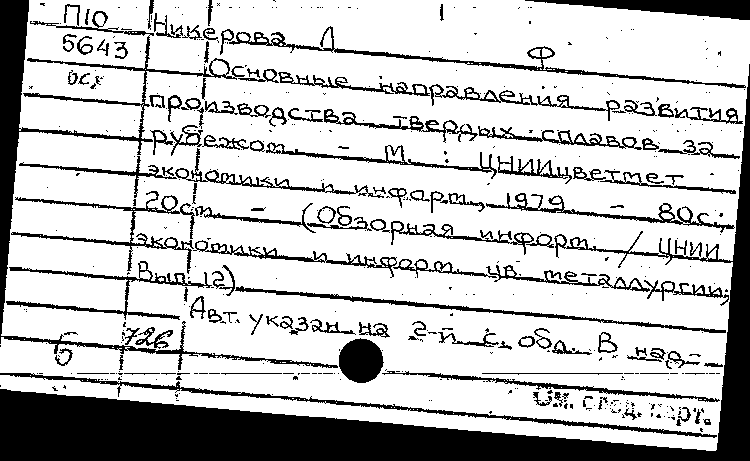 П10
5643
осх
Никерова, Л
Ф
Основные направления развития
производства твердых сплавов за
рубежом. - М. : ЦНИИцветмет
экономики и информ., 1979. - 80с.;
20см. - (Обзорная информ. / ЦНИИ
экономики и информ. цв. металлургии;
Вып. 12).
Авт. указан на 2-й с. обл. В над-
Б 726
См. след. карт.